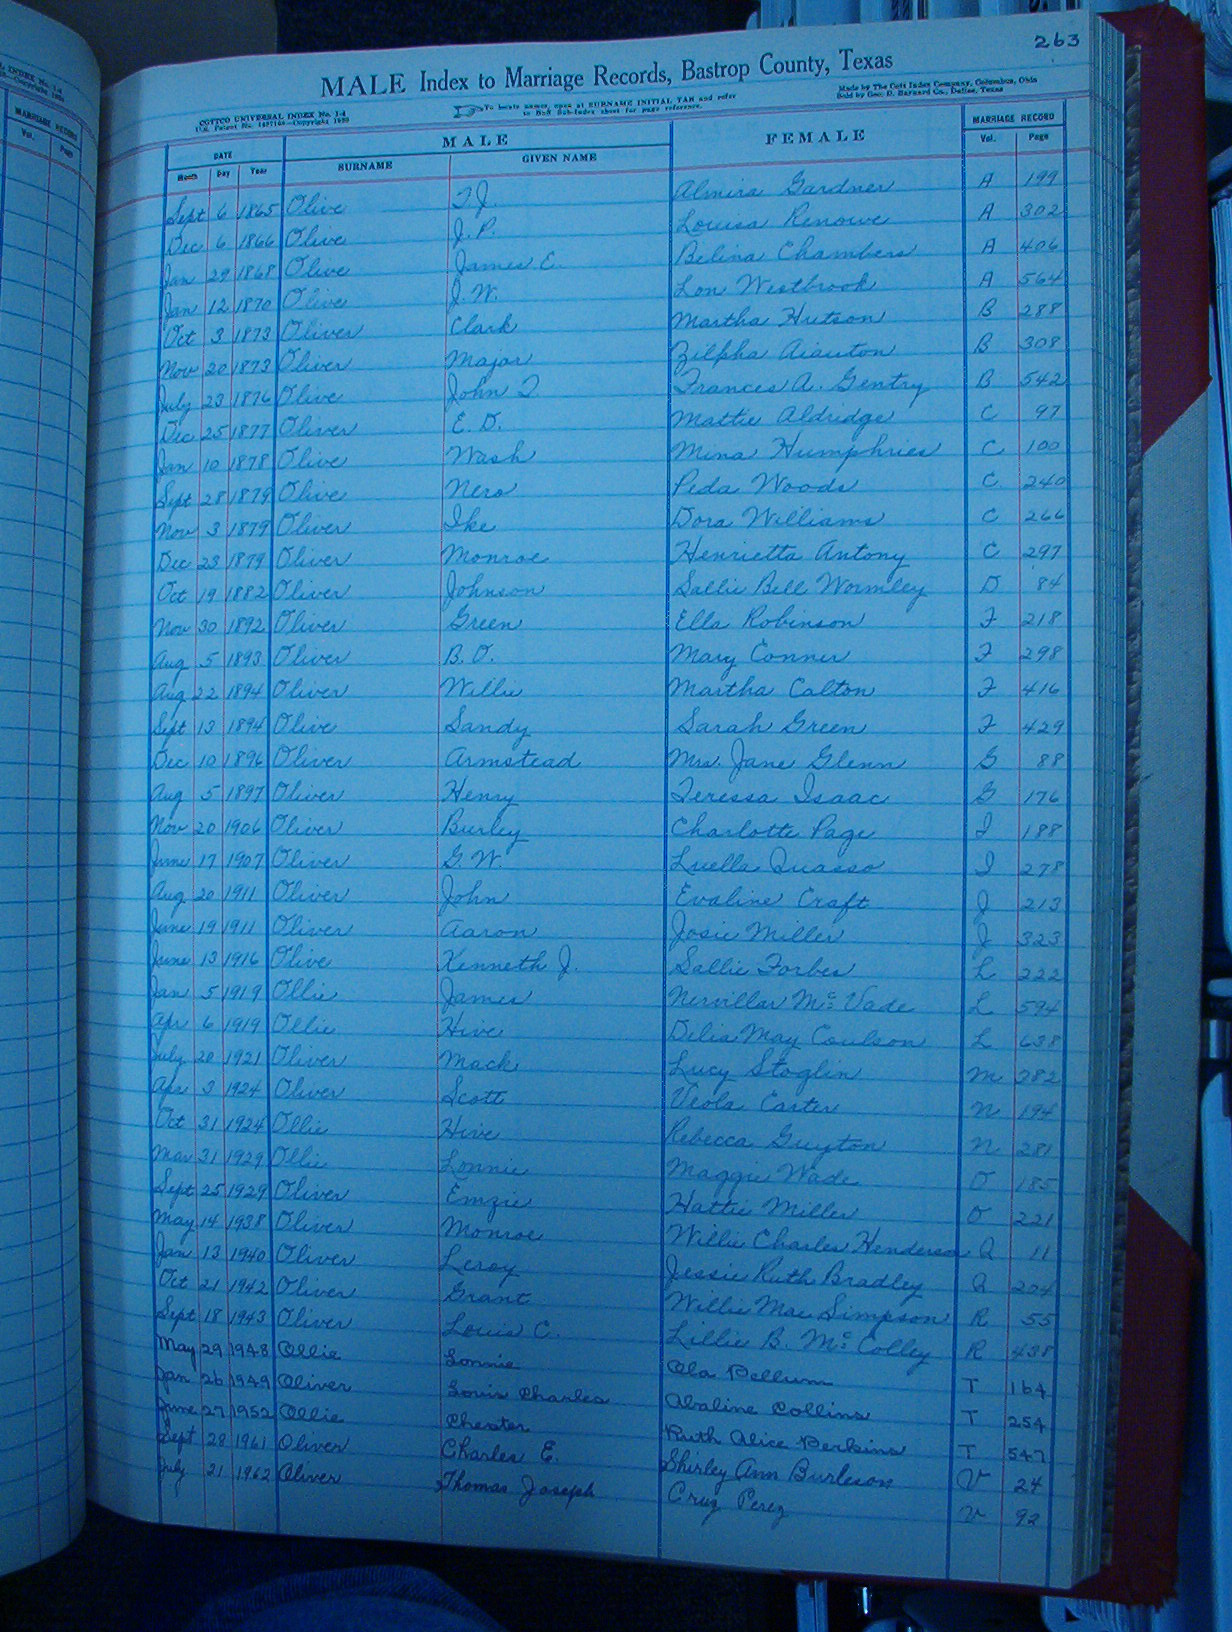 263
MALE Index to Marriage Records, Bastrop County, Texas
COTTCO UNIVERSAL INDEX No. 1-4
To locate names, open at SURNAME INITIAL TAB and refer
Made by The Cott Index Company, Columbus, Ohio
to Buff Sub-Index sheet for page reference.
Sold by Geo. D. Barnard Co., Dallas, Texas
MARRIAGE RECORD
Vol. Page
DATE MALE FEMALE MARRIAGE RECORD
Month Day Year SURNAME GIVEN NAME Vol. Page
Sept 6 1865 Olive T.J. Almira Gardner A 199
Dec 6 1866 Olive J.P. Louisa Renowe A 302
Jan 29 1868 Olive James E. Belina Chambers A 406
Jan 12 1870 Olive J.W. Lon Westbrook A 564
Oct 3 1873 Oliver Clark Martha Hutson B 288
Nov 20 1873 Oliver Major Zilpha B 308
July 23 1876 Olive John T. Frances A. Gentry B 542
Dec 25 1877 Oliver E.D. Mattie Aldridge C 97
Jan 10 1878 Olive Wash Mina Humphries C 100
Sept 28 1879 Olive Nero Peda Woods C 240
Nov 3 1879 Oliver Ike Dora Williams C 266
Dec 23 1879 Oliver Monroe Henrietta Antony C 297
Oct 19 1882 Oliver Johnson Sallie Bell Wormley D 84
Nov 30 1892 Oliver Green Ella Robinson F 218
Aug 5 1893 Oliver B.O. Mary Conner F 298
Aug 22 1894 Oliver Willie Martha Calton F 416
Sept 13 1894 Olive Sandy Sarah Green F 429
Dec 10 1896 Oliver Armstead Mrs. Jane Glenn G 88
Aug 5 1897 Oliver Henry Teressa Isaac G 176
Nov 20 1906 Oliver Burley Charlotte Page I 188
June 17 1907 Oliver G.W. Luella Quasso I 278
Aug 20 1911 Oliver John Evaline Craft J 213
June 19 1911 Oliver Aaron Josie Miller J 323
June 13 1916 Olive Kenneth J. Sallie Forbes L 222
Jan 5 1919 Ollie James Nervillar McVade L 594
Apr 6 1919 Ollie Hive Delia May Coulson L 638
July 20 1921 Oliver Mack Lucy Stoglin M 382
Apr 3 1924 Oliver Scott Veola Carter N 194
Oct 31 1924 Ollie Hive Rebecca Guyton N 281
Mar 31 1929 Ollie Lonnie Maggie Wade O 185
Sept 25 1929 Oliver Emzie Hattie Miller O 221
May 14 1938 Oliver Monroe Willie Charles Henderson Q 11
Jan 13 1940 Oliver Leroy Jessie Ruth Bradley Q 204
Oct 21 1942 Oliver Grant Willie Mae Simpson R 55
Sept 18 1943 Oliver Louis C. Lillie B. McColley R 438
May 29 1948 Ollie Lonnie Ola Pellum T 164
Jan 26 1949 Oliver Louis Charles Abaline Collins T 254
June 27 1952 Ollie Chester Ruth Alice Perkins T 547
Sept 28 1961 Oliver Charles E. Shirley Ann Burleson V 24
July 21 1962 Oliver Thomas Joseph Cruz Perez V 92